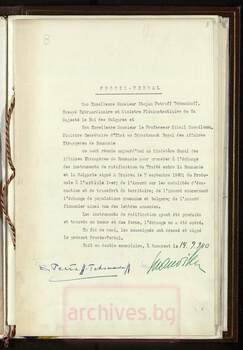 8
PROCES-VERBAL
Son Excellence Monsieur Stoyan Petroff Tchomakoff,
Envoyé Extraordinaire et Ministre Plénipotentiaire de Sa
Majesté le Roi des Bulgares et
Son Excellence Monsieur le Professeur Mihail Manoilesco,
Ministre Secrétaire d'Etat au Département Royal des Affaires
Etrangères de Roumanie
se sont réunis aujourd'hui au Ministère Royal des
Affaires Etrangères de Roumanie pour procéder à l'échange
des instruments de ratification du Traité entre la Roumanie
et la Bulgarie signé à Craiova le 7 septembre 1940, du Protocole
à l'article de l'Accord sur les modalités d'évacuation
et de transfert du territoire, de l'Accord concernant
l'échange de population roumaine et bulgare, de l'Accord
financier ainsi que des lettres annexées.
Les instruments de ratification ayant été produits
et trouvés en bonne et due forme, l'échange en a été opéré.
En foi de quoi, les soussignés ont dressé et signé
le présent Procès-Verbal.
Fait en double exemplaire, à Bucarest le 14.9.940
archives.bg